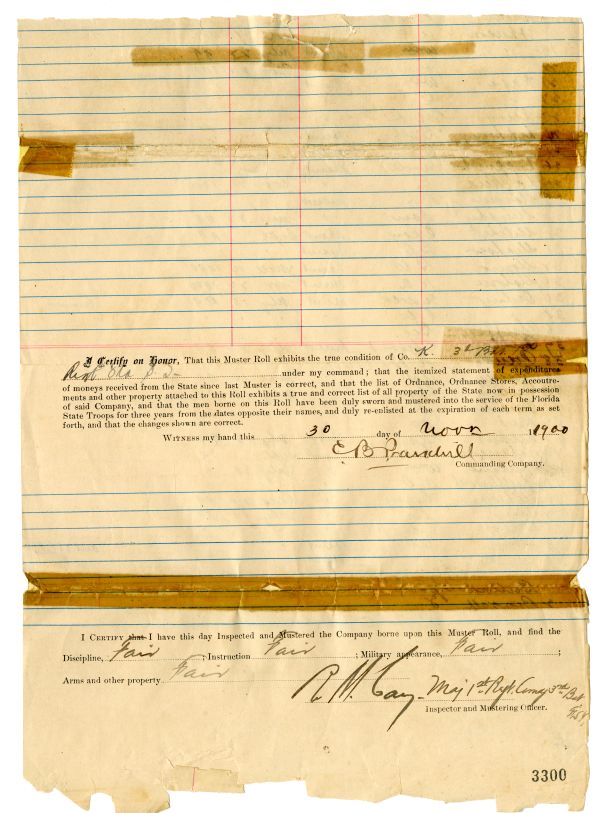 I Certify on Honor, That this Muster Roll exhibits the true condition of Co. K. 3d
Regt Fla S T under my command; that the itemized statement of expenditures
of moneys received from the State since last Muster is correct, and that the list of Ordnance, Ordnance Stores, Accoutre-
ments and other property attached to this Roll exhibits a true and correct list of all property of the State now in possession
of said Company, and that the men borne on this Roll have been duly sworn and mustered into the service of the Florida
State Troops for three years from the dates opposite their names, and duly re-enlisted at the expiration of each term as set
forth, and that the changes shown are correct.
WITNESS my hand this 30 day of 1900
C B
Commanding Company.
I CERTIFY that I have this day Inspected and Mustered the Company borne upon this Muster Roll, and find the
Discipline, Fair ; Instruction Fair ; Military appearance, Fair ;
Arms and other property Fair
R. M. Cay Maj 1st Regt. Comdg 3rd Bat
Inspector and Mustering Officer.
3300